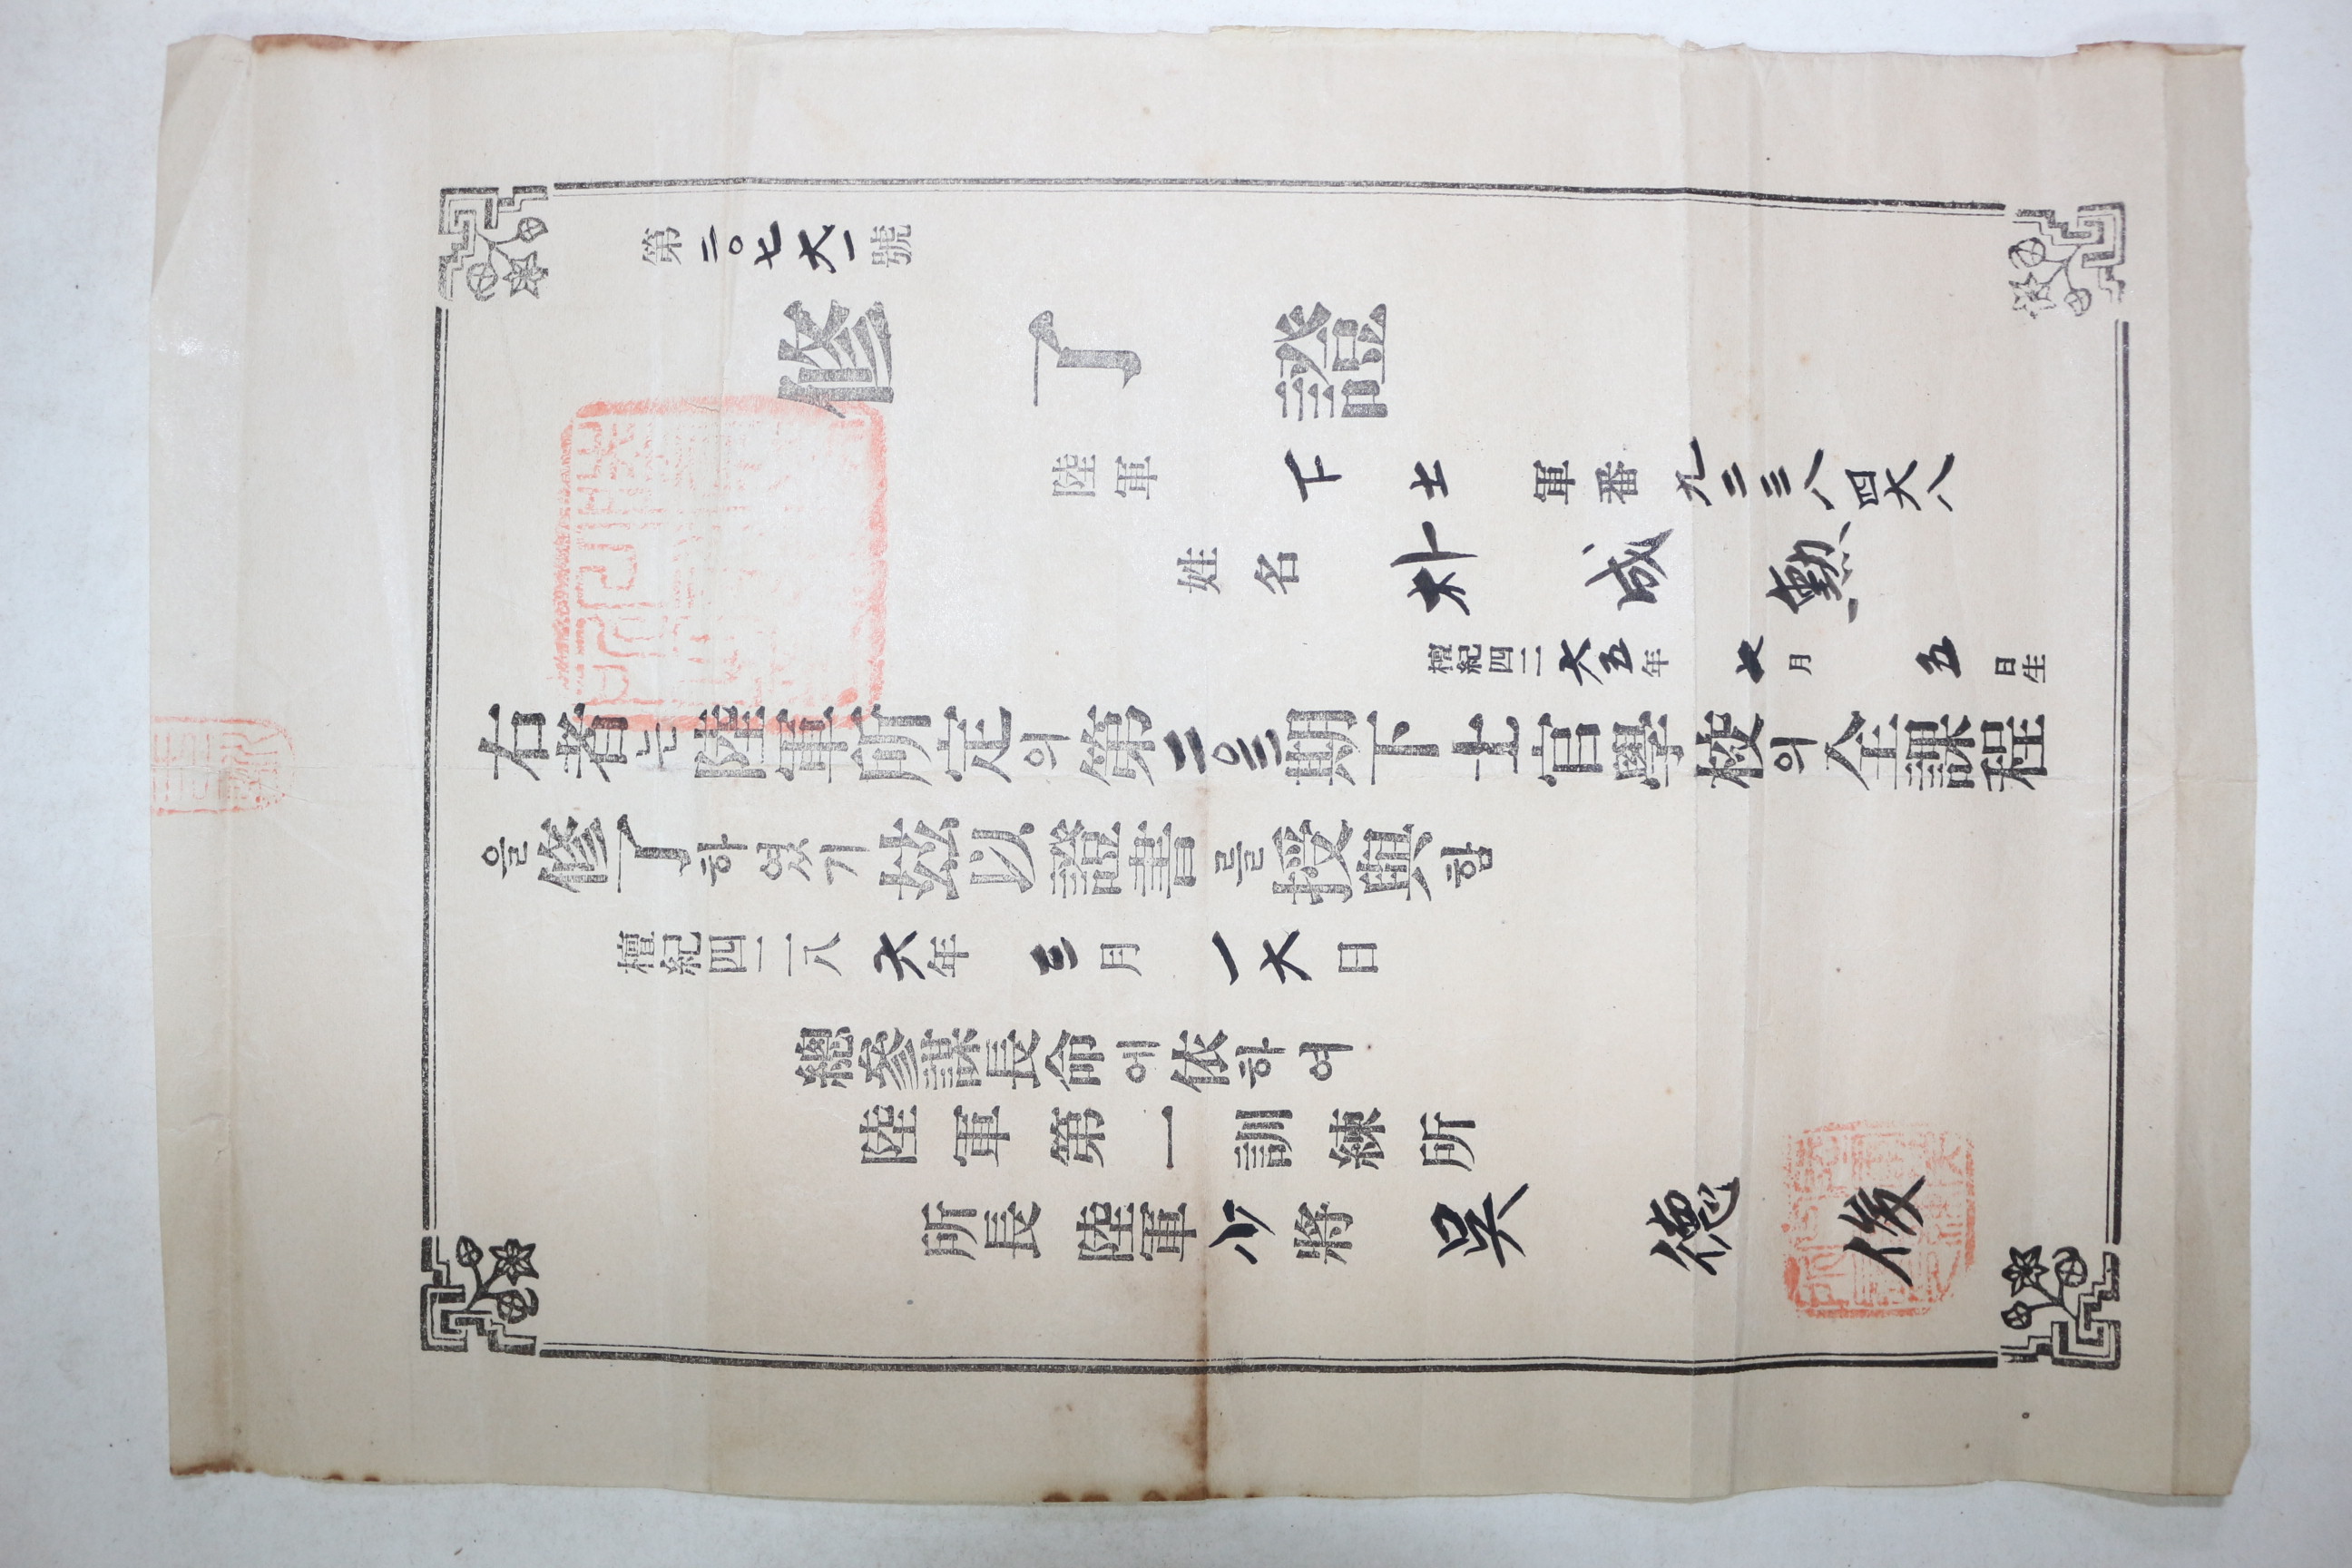 第二〇七六一號
修了證
陸軍 下士 軍番 九二三八四六八
姓名 朴成勲
檀紀四二六五年 七月 五日生
右者는陸軍所定의第二〇三期下士官學校의全課程
을修了하였기玆以證書를授與함
檀紀四二八六年 三月 一六日
總參謀長命에依하여
陸軍第一訓練所
所長 陸軍少將 吳德俊